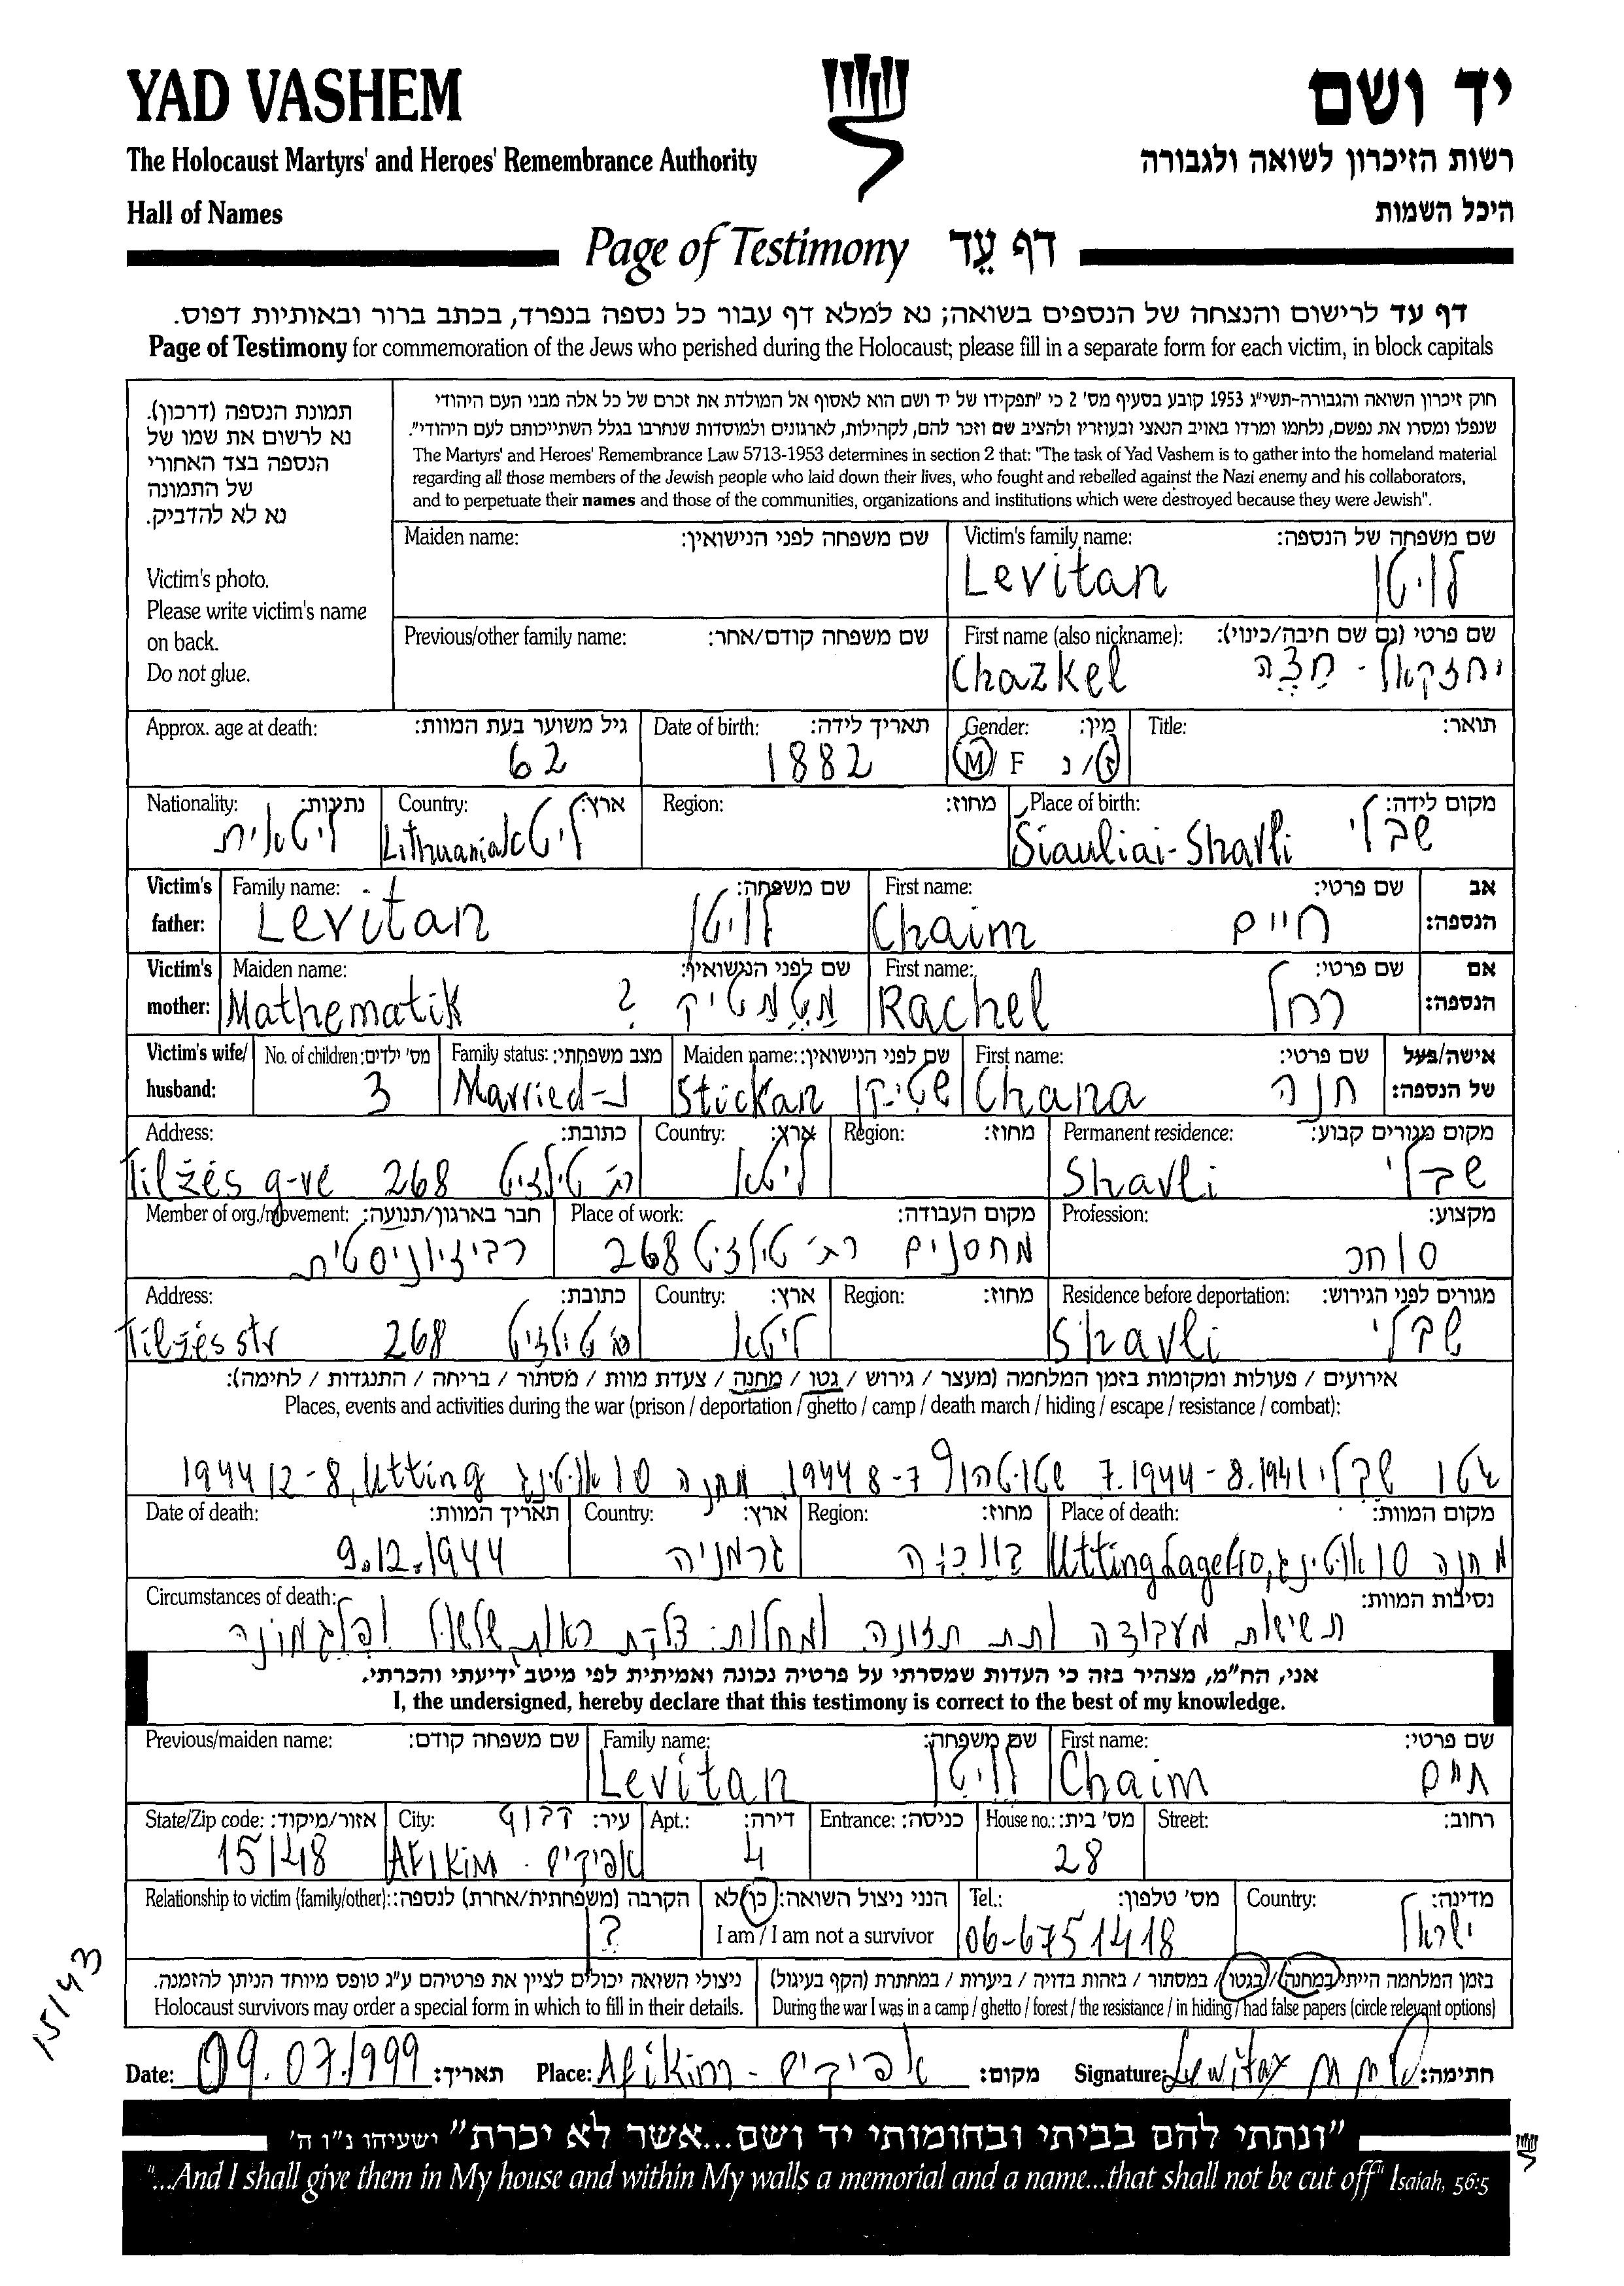 YAD VASHEM
יד ושם
The Holocaust Martyrs' and Heroes' Remembrance Authority
רשות הזיכרון לשואה ולגבורה
Hall of Names
היכל השמות
Page of Testimony דף עֵד
דף עד לרישום והנצחה של הנספים בשואה; נא למלא דף עבור כל נספה בנפרד, בכתב ברור ובאותיות דפוס.
Page of Testimony for commemoration of the Jews who perished during the Holocaust; please fill in a separate form for each victim, in block capitals
תמונת הנספה (דרכון).
נא לרשום את שמו של
הנספה בצד האחורי
של התמונה
נא לא להדביק.
Victim's photo.
Please write victim's name
on back.
Do not glue.
חוק זיכרון השואה והגבורה-תשי"ג 1953 קובע בסעיף מס' 2 כי "תפקידו של יד ושם הוא לאסוף אל המולדת את זכרם של כל אלה מבני העם היהודי
שנפלו ומסרו את נפשם, נלחמו ומרדו באויב הנאצי ובעוזריו ולהציב שם וזכר להם, לקהילות, לארגונים ולמוסדות שנחרבו בגלל השתייכותם לעם היהודי".
The Martyrs' and Heroes' Remembrance Law 5713-1953 determines in section 2 that: "The task of Yad Vashem is to gather into the homeland material
regarding all those members of the Jewish people who laid down their lives, who fought and rebelled against the Nazi enemy and his collaborators,
and to perpetuate their names and those of the communities, organizations and institutions which were destroyed because they were Jewish".
Maiden name: שם משפחה לפני הנישואין:
Victim's family name: שם משפחה של הנספה:
Levitan לויטן
Previous/other family name: שם משפחה קודם/אחר:
First name (also nickname): שם פרטי (גם שם חיבה/כינוי):
Chazkel יחזקאל - חצה
Approx. age at death: גיל משוער בעת המוות:
62
Date of birth: תאריך לידה:
1882
Gender: מין:
M/ F ז/נ
Title: תואר:
Nationality: נתינות:
ליטאית
Country: ארץ:
Lithuania ליטא
Region: מחוז:
Place of birth: מקום לידה:
Siauliai-Shavli שבלי
Victim's father: אב הנספה:
Family name: שם משפחה:
Levitan לויטן
First name: שם פרטי:
Chaim חיים
Victim's mother: אם הנספה:
Maiden name: שם לפני הנישואין:
Mathematik ? מטמטיק
First name: שם פרטי:
Rachel רחל
Victim's wife/ husband: אישה/בעל של הנספה:
No. of children: מס' ילדים:
3
Family status: מצב משפחתי:
Married-נ
Maiden name: שם לפני הנישואין:
Stickan שטיקן
First name: שם פרטי:
Chana חנה
Address: כתובת:
Tilžės g-ve 268 רח' טילז'יט
Country: ארץ:
ליטא
Region: מחוז:
Permanent residence: מקום מגורים קבוע:
Shavli שבלי
Member of org./movement: חבר בארגון/תנועה:
רביזיוניסטית
Place of work: מקום העבודה:
מחסנים רח' טילז'יט 268
Profession: מקצוע:
סוחר
Address: כתובת:
Tilžės str 268 טילז'יט
Country: ארץ:
ליטא
Region: מחוז:
Residence before deportation: מגורים לפני הגירוש:
Shavli שבלי
אירועים / פעולות ומקומות בזמן המלחמה (מעצר / גירוש / גטו / מחנה / צעדת מוות / מסתור / בריחה / התנגדות / לחימה):
Places, events and activities during the war (prison / deportation / ghetto / camp / death march / hiding / escape / resistance / combat):
גטו שבלי 8.1941 - 7.1944 שטוטהוף 7-8 1944, מחנה 10 אוטינג Utting, 8-12 1944
Date of death: תאריך המוות:
9.12.1944
Country: ארץ:
גרמניה
Region: מחוז:
בוואריה
Place of death: מקום המוות:
Utting Lager 10, מחנה 10 אוטינג
Circumstances of death: נסיבות המוות:
תשישות מעבודה ותת תזונה ומחלות: דלקת ראות, שלשול ופלגמונה
אני, הח"מ, מצהיר בזה כי העדות שמסרתי על פרטיה נכונה ואמיתית לפי מיטב ידיעתי והכרתי.
I, the undersigned, hereby declare that this testimony is correct to the best of my knowledge.
Previous/maiden name: שם משפחה קודם:
Family name: שם משפחה:
Levitan לויטן
First name: שם פרטי:
Chaim חיים
State/Zip code: אזור/מיקוד:
15148
City: עיר:
Afikim - אפיקים
Apt.: דירה:
4
Entrance: כניסה:
House no.: מס' בית:
28
Street: רחוב:
Relationship to victim (family/other): הקרבה (משפחתית/אחרת) לנספה:
בן
הנני ניצול השואה: כן/לא
I am / I am not a survivor
Tel.: מס' טלפון:
06-6751418
Country: מדינה:
ישראל
ניצולי השואה יכולים לציין את פרטיהם ע"ג טופס מיוחד הניתן להזמנה.
Holocaust survivors may order a special form in which to fill in their details.
בזמן המלחמה הייתי במחנה/בגטו/ במסתור / בזהות בדויה / ביערות / במחתרת (הקף בעיגול)
During the war I was in a camp / ghetto / forest / the resistance / in hiding / had false papers (circle relevant options)
15143
Date: 09.07.1999 תאריך: Place: Afikim - אפיקים מקום: Signature: חתימה:
"ונתתי להם בביתי ובחומותי יד ושם...אשר לא יכרת" ישעיהו נ"ו ה'
"...And I shall give them in My house and within My walls a memorial and a name...that shall not be cut off" Isaiah, 56:5